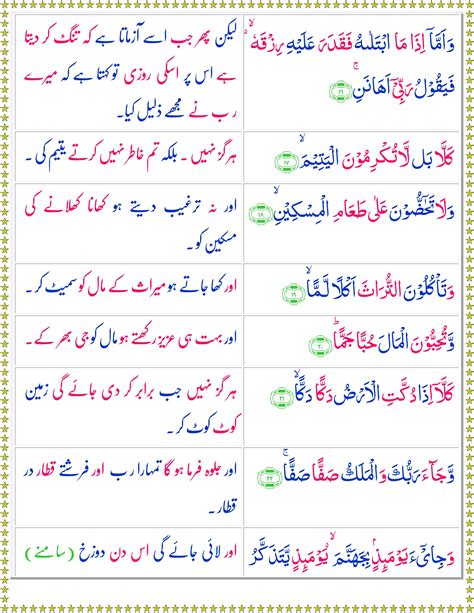 وَاَمَّاۤ اِذَا مَا ابْتَلٰىهُ فَقَدَرَ عَلَيْهِ رِزْقَهٗ ۙ
فَيَقُوْلُ رَبِّيْۤ اَهَانَنِ ۚ ﴿۱۶﴾
لیکن پھر جب اسے آزماتا ہے کہ تنگ کر دیتا
ہے اس پر اسکی روزی تو کہتا ہے کہ میرے
رب نے مجھے ذلیل کیا۔
كَلَّا بَلْ لَّا تُكْرِمُوْنَ الْيَتِيْمَ ۙ ﴿۱۷﴾
ہر گز نہیں۔ بلکہ تم خاطر نہیں کرتے یتیم کی۔
وَلَا تَحٰٓضُّوْنَ عَلٰى طَعَامِ الْمِسْكِيْنِ ۙ ﴿۱۸﴾
اور نہ ترغیب دیتے ہو کھانا کھلانے کی
مسکین کو۔
وَتَاْكُلُوْنَ التُّرَاثَ اَكْلًا لَّمًّا ۙ ﴿۱۹﴾
اور کھا جاتے ہو میراث کے مال کو سمیٹ کر۔
وَّتُحِبُّوْنَ الْمَالَ حُبًّا جَمًّا ؕ ﴿۲۰﴾
اور بہت ہی عزیز رکھتے ہو مال کو جی بھر کے۔
كَلَّاۤ اِذَا دُكَّتِ الْاَرْضُ دَكًّا دَكًّا ۙ ﴿۲۱﴾
ہر گز نہیں جب برابر کر دی جائے گی زمین
کوٹ کوٹ کر۔
وَّجَآءَ رَبُّكَ وَالْمَلَكُ صَفًّا صَفًّا ۚ ﴿۲۲﴾
اور جلوہ فرما ہو گا تمہارا رب اور فرشتے قطار در
قطار۔
وَجِايْٓءَ يَوْمَئِذٍۭ بِجَهَنَّمَ ۙ يَوْمَئِذٍ يَّتَذَكَّرُ
اور لائی جائے گی اس دن دوزخ (سامنے)